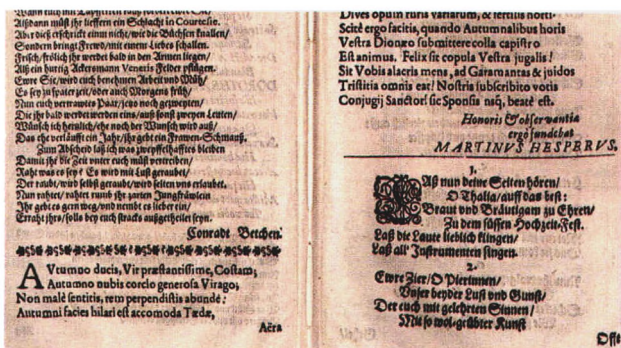 Wann euch mit
Alßdann müst jhr lieffern ein Schlacht in Courtesie.
Aber dieß erschrickt einm nicht/wie die Büchsen knallen/
Sondern bringt Frewd/mit einem Liebes schallen.
Frisch/frölich jhr werdet bald in den Armen liegen/
Alß ein hurtig Ackersmann Veneris Felder pflügen.
Ewre Sie/wird euch benehmen Arbeit und Müh/
Es sey zu spater zeit/oder auch Morgens früh/
Nun euch vertrawtes Paar/jetzo noch gezweyten/
Die jhr bald werdet werden eins/auß sonst zweyen Leuten/
Wünsch ich hertzlich/ehe noch der Wunsch wird auß/
Das ehe verläufft ein Jahr/jhr gebt ein Frawen-Schmauß.
Zum Abscheid laß ich was zweyffelhafftes bleiben
Damit jhr die Zeit unter euch müst vertreiben/
Raht was es sey? Es wird mit Lust geraubet/
Der raubt/wird selbst geraubt/wird selten uns erlaubet.
Nun rahtet/rahtet runub jhr zarten Jungfräwlein
Jhr gebt es gern weg/und nembt es lieber ein/
Erraht jhrs/solls bey euch stracks außgetheilet seyn.
Conradt Betchen.
AVtumno ducis, Vir præstantissime, Costam;
Autumno nubis corclo generosa Virago;
Non malè sentitis, rem perpendistis abundè:
Autumni facies hilari est accomoda Tædæ,
Aëra
Dives opum ruris variarum, & fertilis horti.
Scitè ergo facitis, quando Autumnalibus horis
Vestra Dionæo submittere colla capistro
Est animus. Felix sit copula Vestra jugalis!
Sit Vobis alacris mens, ad Garamantas & juidos
Tristitia omnis eat! Nostris subscribito votis
Conjugij Sanctor! sic Sponsis nsq́, beatè est.
Honoris & observantia
ergò fundebat
MARTINVS HESPERVS.
1.
Laß nun deine Seiten hören/
O Thalia/auff das best:
Braut und Bräutigam zu Ehren/
Zu dem süssen Hochzeit-Fest.
Laß die Laute lieblich klingen/
Laß all' Instrumenten singen.
2.
Ewre Zier/O Pierinnen/
Unser beyder Lust und Gunst/
Der euch mit gelehrten Sinnen/
Mit so wol-geübter Kunst
Offt